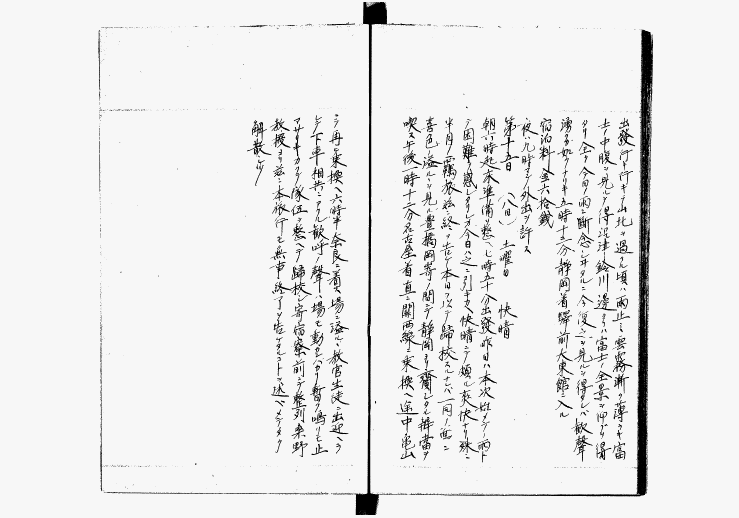 出發行キ行キテ山北ヲ過ル頃ハ雨止ミ雲霧漸ク薄ラキ富
士ノ中腹ヲ見ルヲ得沼津鈴川邊ヨリハ富士ノ全景ヲ仰グヲ得
タリ全ク今日ノ雨ニ斷念シ居タルニ今復ビ之ヲ見ルヲ得タレバ歡聲
湧ク如クナリキ五時十二分静岡着驛前大東館ニ入ル
宿泊料金六拾錢
夜ハ九時マデ外出ヲ許ス
第十五日 (八日) 土曜日 快晴
朝六時起床準備ヲ整ヘ七時五十分出發昨日ハ本次始メテノ雨ト
テ困難ヲ感ジタリシガ今日ハ之ニ引キカヘ快晴ニテ頗ル爽快ナリ殊ニ
半月ノ羈旅始ニ終ヲ告ゲ本日ヲ以テ歸校スルナレバ一同ノ面ニ
喜色ノ溢ルヽヲ見ル豊橋岡寄ノ間ニテ静岡ヨリ齎シタル辨當ヲ
喫ス午後一時十二分名古屋着直ニ關西線ニ乗換ヘ途中亀山
ニテ再ビ乗換ヘ六時半奈良ニ着ス場ニ溢ルヽ教官生徒ニ出迎ヘラ
レテ下車相共ニアグル歡呼ノ聲ハ場モ動カンバカリ暫シ鳴リモ止
マザリキカクテ隊伍ヲ整ヘテ歸校シ寄宿寮前ニテ整列糸野
教授ヨリ茲ニ本旅行モ無事終了ヲ告ゲタルコトヲ述ベメデタク
解散セリ